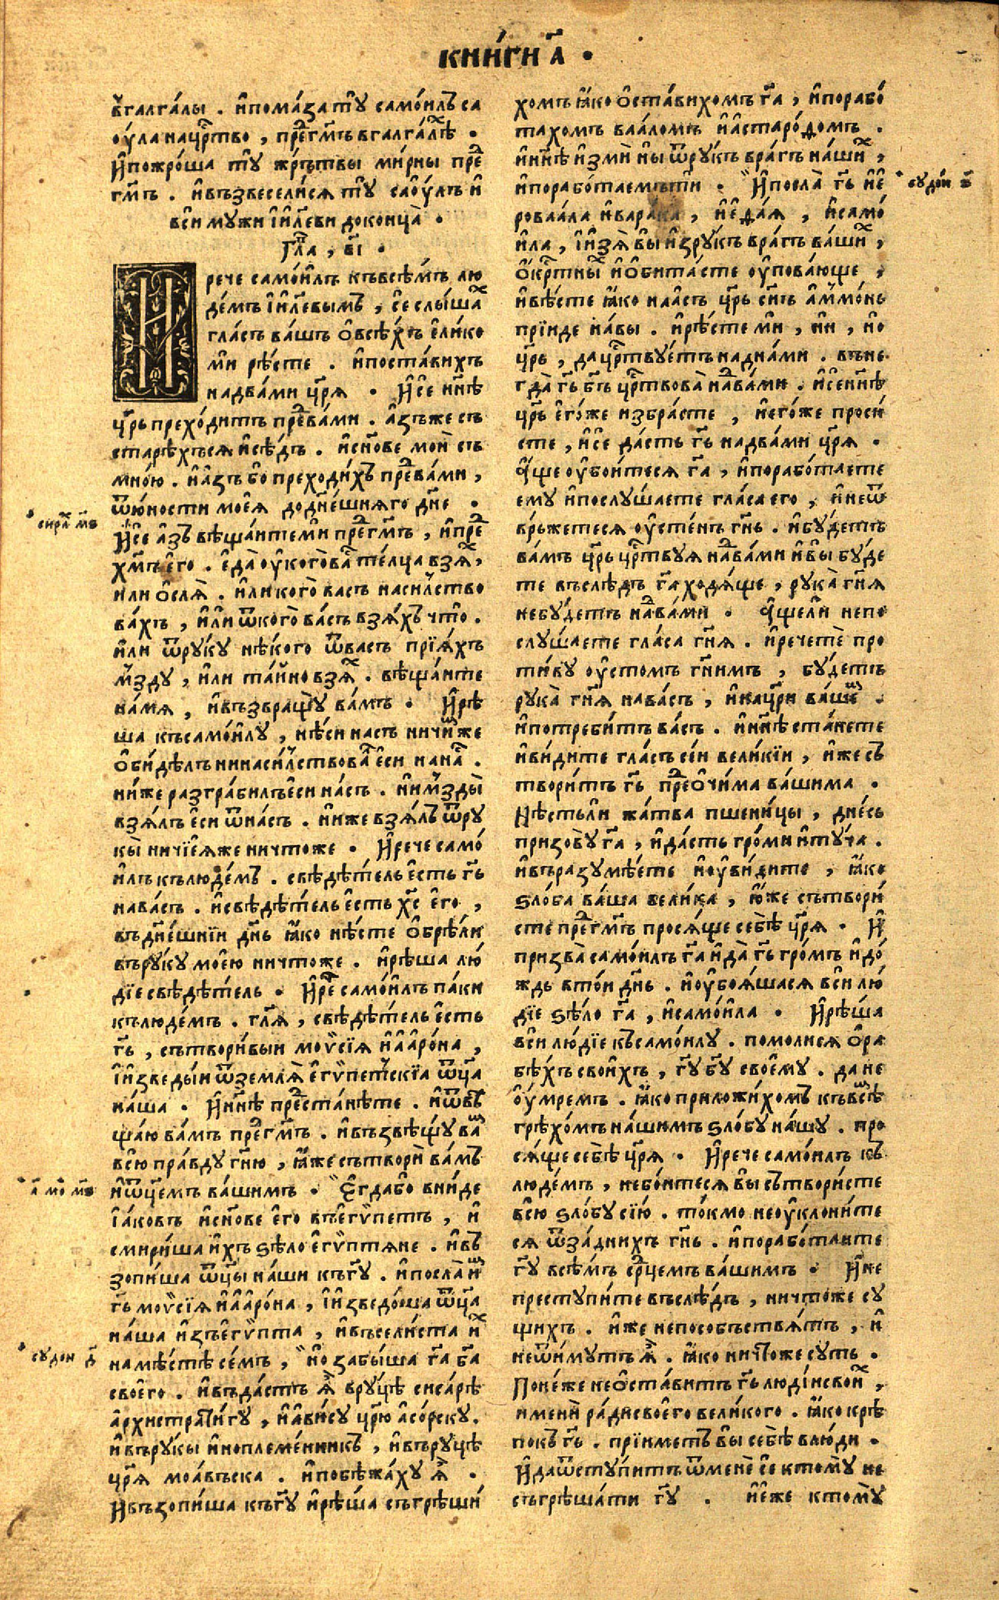 кни́ги а҃ .
в̾галга́лы . и҆пома́за тꙋ̀ самои́лъ са
ѹ́ла на црⷭ҇тво , преⷣ гмⷭ҇ъ в галга́лѣⷯ .
И҆пожро́ша тꙋ̀ жрътвы ми́рны преⷣ
гмⷭ҇ъ . и҆възвесели́ся тꙋ̀ саѹ́лъ и҆
вси мꙋжи і҆и҃леви доконца̀ .
Гла , в҃і .
И҆ рече самои́лъ къвсѣ́мъ лю
де́мъ і҆и҃левымъ , се слы́шаⷯ
гла́съ ва́шъ о҆всѣ́хъ е҆ли́ко
ми рѣ́сте . и҆поста́вихъ
надва́ми цр҃я . И҆се нн҃ѣ
цр҃ь прехо́дитъ преⷣва́ми . а҆зъже съ
старѣ́хъся и҆сѣ́дъ . и҆сн҃ове моѝ съ
мно́ю . и҆а҆́зъ бо преходи́хъ преⷣва́ми ,
ѿю́ности моея̀ до дне́шняго дн҃е .
И҆се а҆зъ вѣща́ите ми преⷣгмⷭ҇ъ , и҆преⷣ
хмⷭ҇ъ е҆го̀ . е҆да̀ ѹ҆кого̀ ваⷭ те́лца взя́ⷯ ,
или о҆сля̀ . и҆ли кого̀ ва́съ наси́лство
ва́хъ , и҆лѝ ѿкого̀ ва́съ взя́хъ что̀ .
и҆ли ѿрꙋкꙋ нѣ́кого ѿва́съ прїя́хъ
мздꙋ̀ , и҆ли та́ино взя́ⷯ . вѣща́ите
на́мя , и҆възвращꙋ̀ ва́мъ . И҆рѣ
ша къ самои́лꙋ , нѣ́си на́съ ничи́мже
о҆би́дѣлъ нинаси́лствоваⷧ е҆сѝ наⷭ .
ни́же разгра́билъ е҆си на́съ . ни мзды̀
взя́лъ е҆си ѿна́съ . ниже взя́лъ ѿрꙋ
кы̀ ничїея́же ничто́же . И҆рече само́
илъ къ лю́демъ . свѣдѣ́тель е҆сть гь҃
нава́съ . и҆свѣдѣ́тель е҆сть хс҃ е҆го̀ ,
въдне́шнїи дн҃ь ꙗ҆ко нѣ́сте о҆брѣлѝ
върꙋкꙋ̀ мое́ю ничто́же . и҆рѣ́ша лю́
дїе свѣдѣ́тель . И҆реⷱ҇ самои́лъ па́ки
къ лю́демъ . гл҃я , свѣдѣ́тель е҆сть
гь҃ , сътвори́выи моѵ҆сїя и҆а҆аро́на ,
і҆изведы́и ѿземля̀ е҆гѵ́петскїа ѿц҃а
на́ша . И҆нн҃ѣ предⷭ҇танѣте . и҆ѿвѣ
ща́ю ва́мъ преⷣгмⷭ҇ъ . и҆възвѣщꙋ̀ ваⷨ
всю̀ пра́вдꙋ гн҃ю , ꙗ҆́же сътворѝ ва́мъ
и҆ѿц҃е́мъ ва́шимъ . Е҆гдабо вни́де
і҆а́ковъ и҆сн҃ове е҆го̀ въ е҆гѵ́петъ , и҆
смири́ша и҆́хъ ѕѣло̀ е҆гѵ́птяне . и҆въ
зопи́ша ѿц҃ы на́ши къ гꙋ҃ . и҆посла̀
гь҃ моѵ҆сїя и҆а҆аро́на , і҆изведо́ша ѿц҃а
на́ша и҆зъ е҆гѵ́пта , и҆въсели́ста иⷯ
на мѣ́стѣ се́мъ , и҆о забы́ша га҃ ба҃
своего̀ . и҆въда́стъ ꙗ҆̀ врꙋцѣ̀ сиса́рѣ
а҆рхистрати́гꙋ , и҆а҆ви́сꙋ цр҃ю а҆со́рскꙋ .
и҆върꙋкы̀ и҆ноплеме́нникъ , и҆върꙋцѣ̀
цр҃я моа́въска . и҆побѣжа́хꙋ ꙗ҆̀ .
И҆възопи́ша къ гꙋ҃ и҆рѣ́ша съгрѣши́
хомъ ꙗ҆ко о҆ста́вихомъ га҃ , и҆порабо́
тахомъ ваа́ломъ и҆а҆старо́домъ .
и҆нн҃ѣ и҆змѝ ны̀ ѿрꙋкъ вра́гъ на́шиⷯ ,
и҆порабо́таемъ ти . И҆посла̀ гь҃ и҆е҆
роваа́ла и҆вара́ка , и҆е҆да́я , и҆самои́
ила , і҆изя̀ вы̀ и҆зрꙋкъ вра́гъ ва́шиⷯ ,
о҆крⷭ҇тныⷯ и҆ о҆бита́сте ѹ҆пова́юще ,
и҆вѣ́сте ꙗ҆ко наа́съ цр҃ь сн҃ъ а҆ммо́нь
прїи́де на́вы . и҆рѣ́сте ми , ни , но
цр҃ь , да црⷭ҇твꙋетъ нади҆а́ми . въне
гда̀ гь҃ бг҃ъ црⷭ҇твова̀ наⷣва́ми . и҆сенн҃ѣ
цр҃ь е҆го́же избра́сте , и҆его́же проси́
сте , и҆се да́сть гь҃ надва́ми цр҃я .
А҆́ще ѹ҆бои́теся га҃ , и҆порабо́таете
емꙋ̀ и҆послꙋ́шаете гла́са его̀ , и҆неѿ
врьжетеся ѹ҆сте́нъ гн҃ь . и҆бꙋ́детъ
ва́мъ цр҃ь црⷭ҇твꙋя наⷣва́ми и҆вы̀ бꙋде
те въслѣ́дъ га҃ ходя́ще , рꙋка̀ гн҃я
небꙋ́детъ наⷣва́ми . А҆́щели непо
слꙋ́шаете гла́са гн҃я . и҆рече́те про
ти́вꙋ ѹ҆сто́мъ гн҃имъ , бꙋ́детъ
рꙋка̀ гн҃я нава́съ , и҆нацр҃и ва́шеⷨ .
и҆потреби́тъ ва́съ . и҆нн҃ѣ ста́нете
и҆ви́дите гла́съ се́и вели́кїи , и҆́же съ
твори́тъ гь҃ преⷣ о҆чи́ма ва́шима .
Нѣ́стьли жа́тва пшени́цы , дне́сь
призовꙋ̀ га҃ , и҆да́сть гро́ми и҆тꙋ́ча .
и҆въразꙋмѣ́ете и҆ѹ҆ви́дите , ꙗ҆ко
ѕло́ба ва́ша вели́ка , ю҆же сътвори́
сте преⷣгмⷭ҇ъ прося́ще себѣ̀ цр҃я . И҆
призва̀ самои́лъ га҃ и҆да̀ гь҃ гро́мъ и҆до́
ждь вто́и дн҃ь . и҆ѹ҆боя́шася вси лю́
дїе ѕѣло̀ га҃ , и҆самои́ла . И҆рѣ́ша
вси лю́дїе къ самои́лꙋ . помоли́ся о҆ра
бѣ́хъ свои́хъ , гꙋ҃ бгꙋ҃ своемꙋ̀ . да не
ѹ҆́мремъ . ꙗ҆ко приложи́хомъ къ всѣⷨ
грѣхо́мъ на́шимъ ѕло́бꙋ на́шꙋ . про
ся́ще себѣ̀ цр҃я . И҆рече самои́лъ къ
лю́демъ , небо́итеся вы̀ сътвори́сте
всю̀ ѕло́бꙋ сїю̀ . то́кмо неѹ҆клони́те
ся ѿза́днихъ гн҃ь . и҆порабо́таите
гꙋ҃ всѣ́мъ срⷣцемъ ва́шимъ . И҆не
престꙋпи́те въслѣ́дъ , ничто́же сꙋ
щихъ . иже непособьствя́тъ , и҆
неѿи́мꙋтъ ꙗ҆̀ . ꙗ҆ко ничто́же сꙋть .
Поне́же не о҆ста́витъ гь҃ лю́дїи свои́ⷯ ,
именѝ ра́ди своего̀ вели́кого . ꙗ҆ко крѣ́
покъ гь҃ . прїи́метъ вы̀ себѣ̀ влю́ди .
И҆да ѿстꙋ́питъ ѿменѐ се ктомꙋ̀ не
съгрѣша́ти гꙋ҃ . и҆е҆же ктомꙋ̀
сирⷯ м҃ѕ
а҃ мо м҃ѕ
сꙋдеи д҃
сꙋдеи ѕ҃